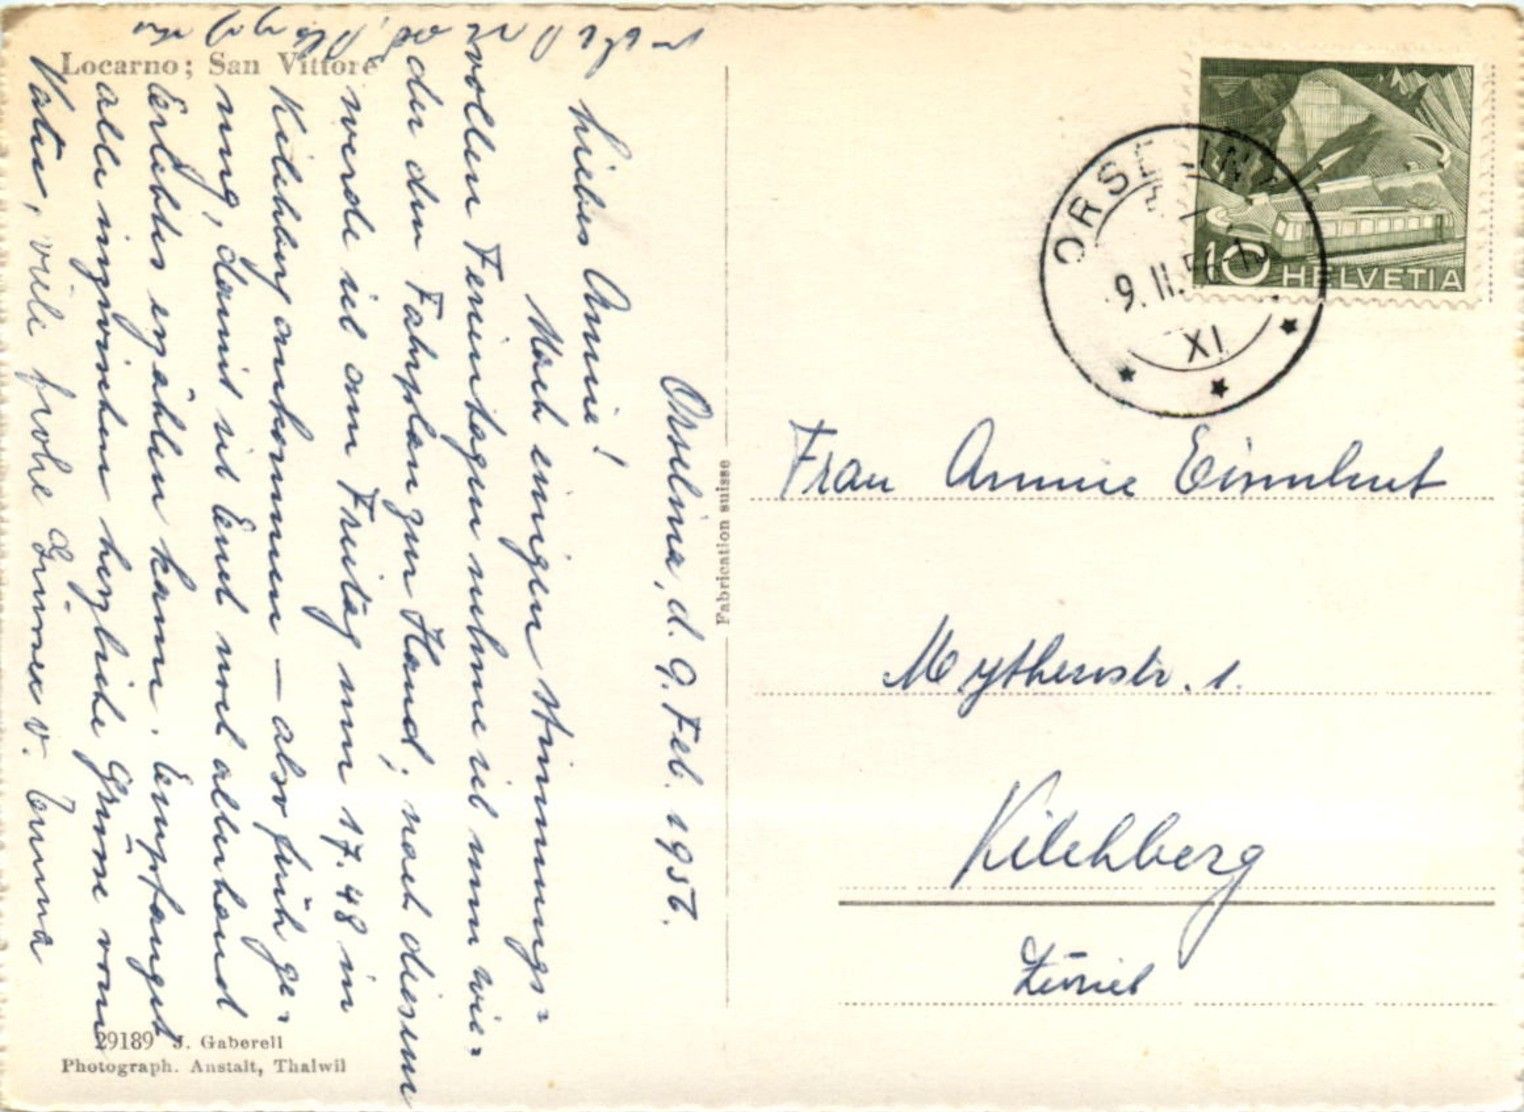 Locarno; San Vittore
Orselina, d. 9. Feb. 1956.
Liebes Annie!
Nach einigen stimmungs=
vollen Ferientagen nehme ich nun wie=
der den Fahrplan zur Hand; nach diesem
werde ich am Freitag um 17.48 in
Kilchberg ankommen – also früh ge=
nug, damit ich Euch noch allerhand
Erlebtes erzählen kann. Empfanget
alle inzwischen herzliche Grüsse vom
Vater, viele frohe Grüsse v. Emma
Fabrication suisse
29189 J. Gaberell
Photograph. Anstalt, Thalwil
HELVETIA
10
ORSELINA
9. II. 56
XI
Frau Annie
Mythenstr. 1.
Kilchberg
Zürich